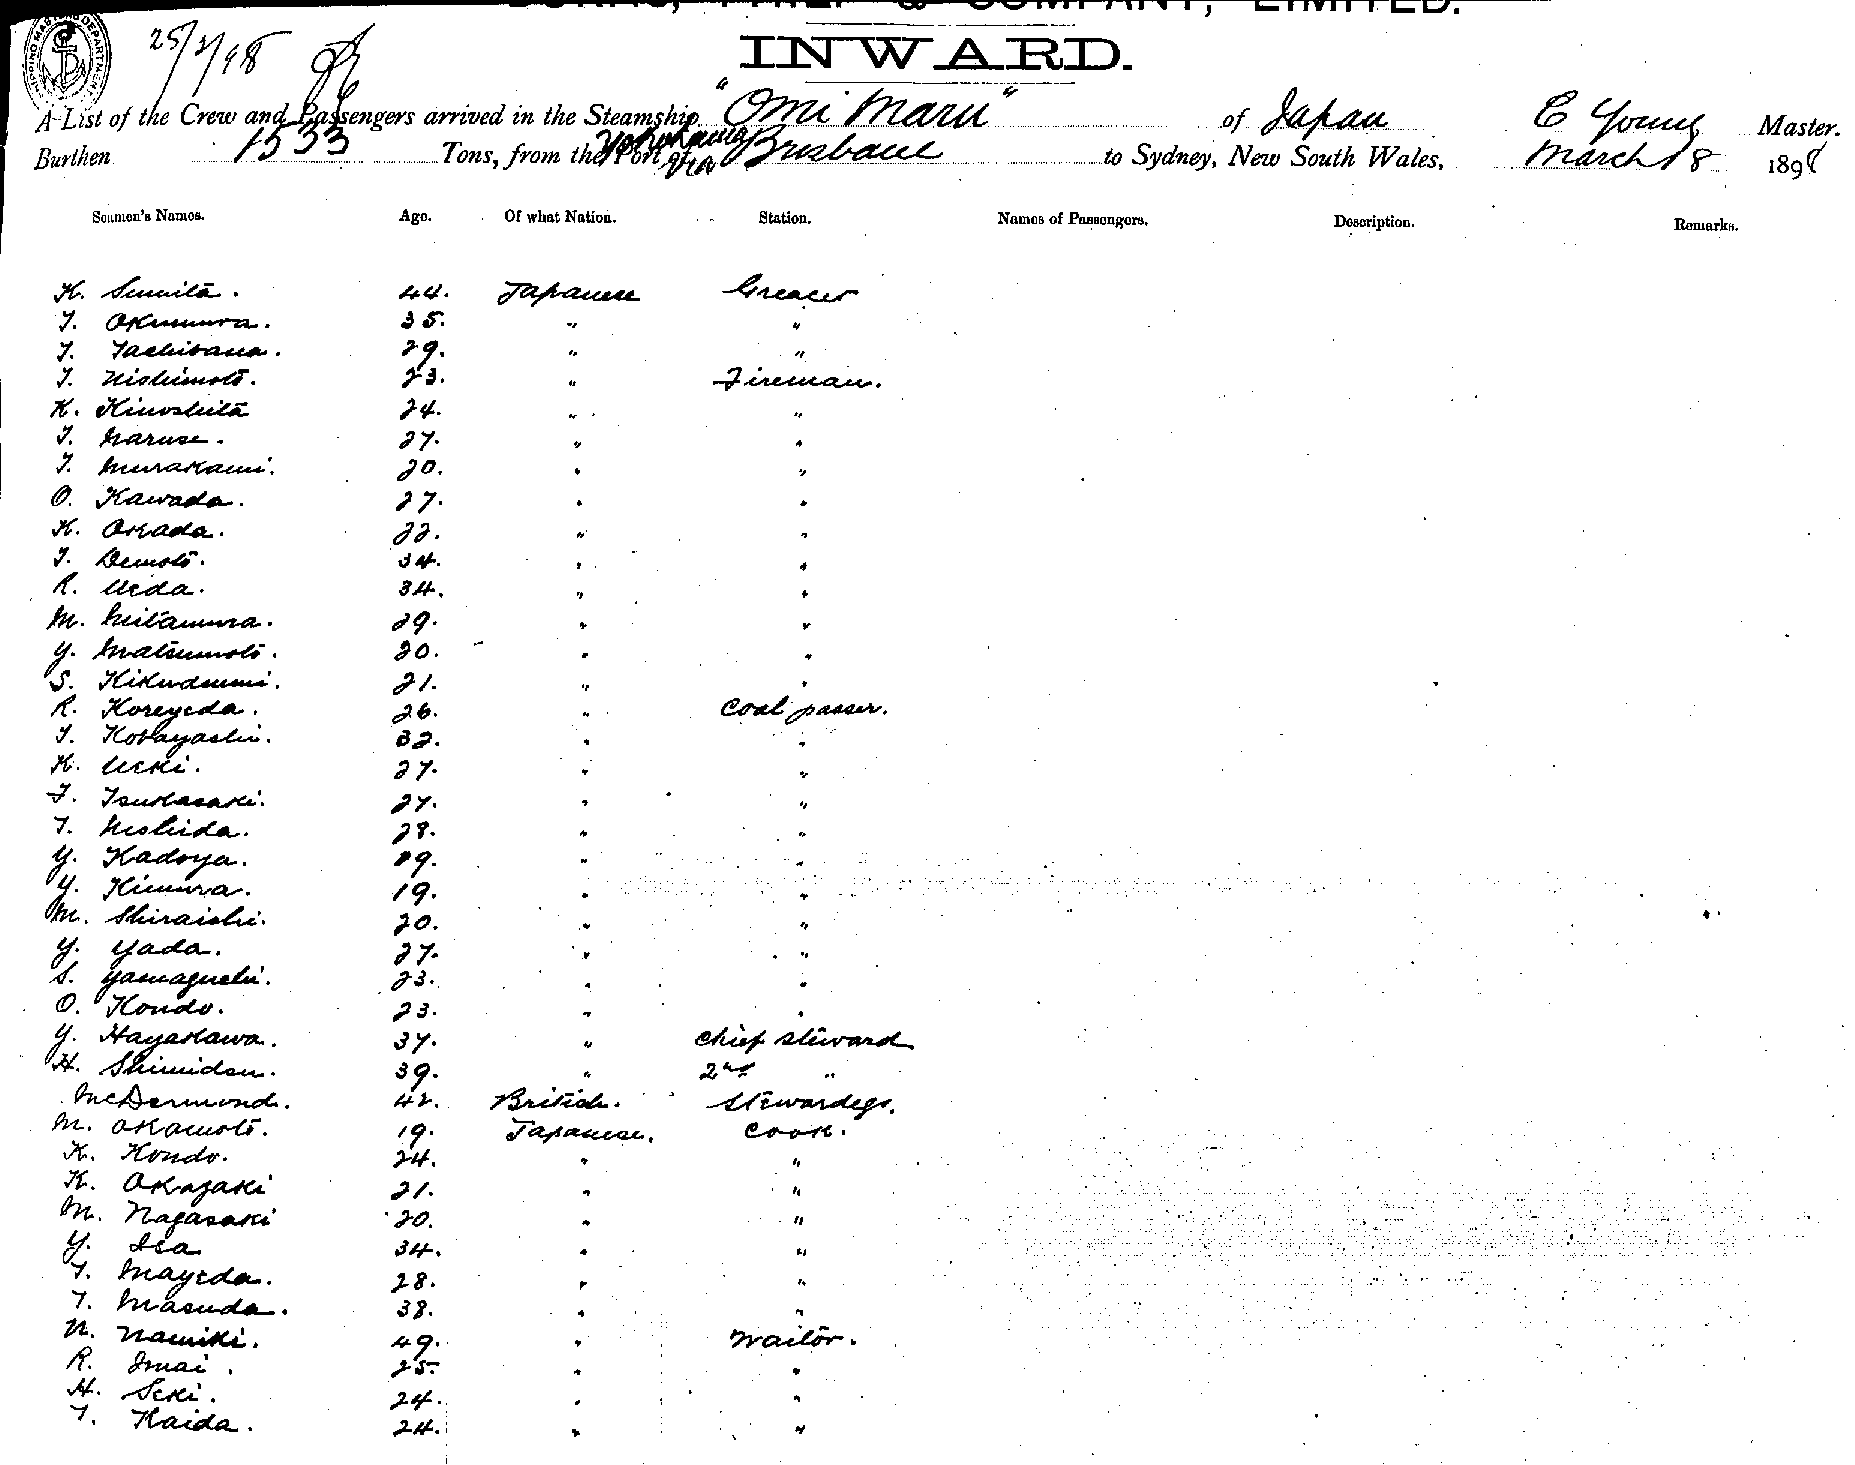 BURNS, PHILP & COMPANY, LIMITED.
INWARD.
25/3/98
A List of the Crew and Passengers arrived in the Steamship "Omi Maru" of Japan C Young Master.
Burthen 1533 Tons, from the Port of Yokohama via Brisbane to Sydney, New South Wales, March 18 1898
Seamen's Names. Age. Of what Nation. Station. Names of Passengers. Description. Remarks.
K. Sumita. 44. Japanese Greaser
T. Okumura. 35. " "
T. Tachibana. 29. " "
T. Nishimoto. 23. " Fireman.
K. Kinoshita 24. " "
T. Naruse. 27. " "
T. Murakami. 20. " "
O. Kawada. 27. " "
K. Okada. 22. " "
T. Demoto. 34. " "
R. Ueda. 34. " "
M. Mitamura. 29. " "
Y. Matsumoto. 20. " "
S. Kikudzumi. 21. " "
R. Koreyeda. 26. " Coal passer.
T. Kobayashi. 32. " "
K. Ueki. 27. " "
T. Tsukasaki. 27. " "
T. Nishida. 28. " "
Y. Kadoya. 29. " "
Y. Kimura. 19. " "
M. Shiraishi. 20. " "
Y. Yada. 27. " "
S. Yamaguchi. 23. " "
O. Kondo. 23. " "
Y. Hayakawa. 37. " Chief Steward
H. Shimidzu. 39. " 2nd "
McDermond. 42. British. Stewardess.
M. Okamoto. 19. Japanese. Cook.
K. Kondo. 24. " "
K. Okazaki 21. " "
M. Nagasaki 20. " "
Y. Isa 34. " "
T. Mayeda. 28. " "
T. Masuda. 38. " "
N. Namiki. 49. " Waitor.
R. Imai. 25. " "
H. Seki. 24. " "
T. Kaida. 24. " "